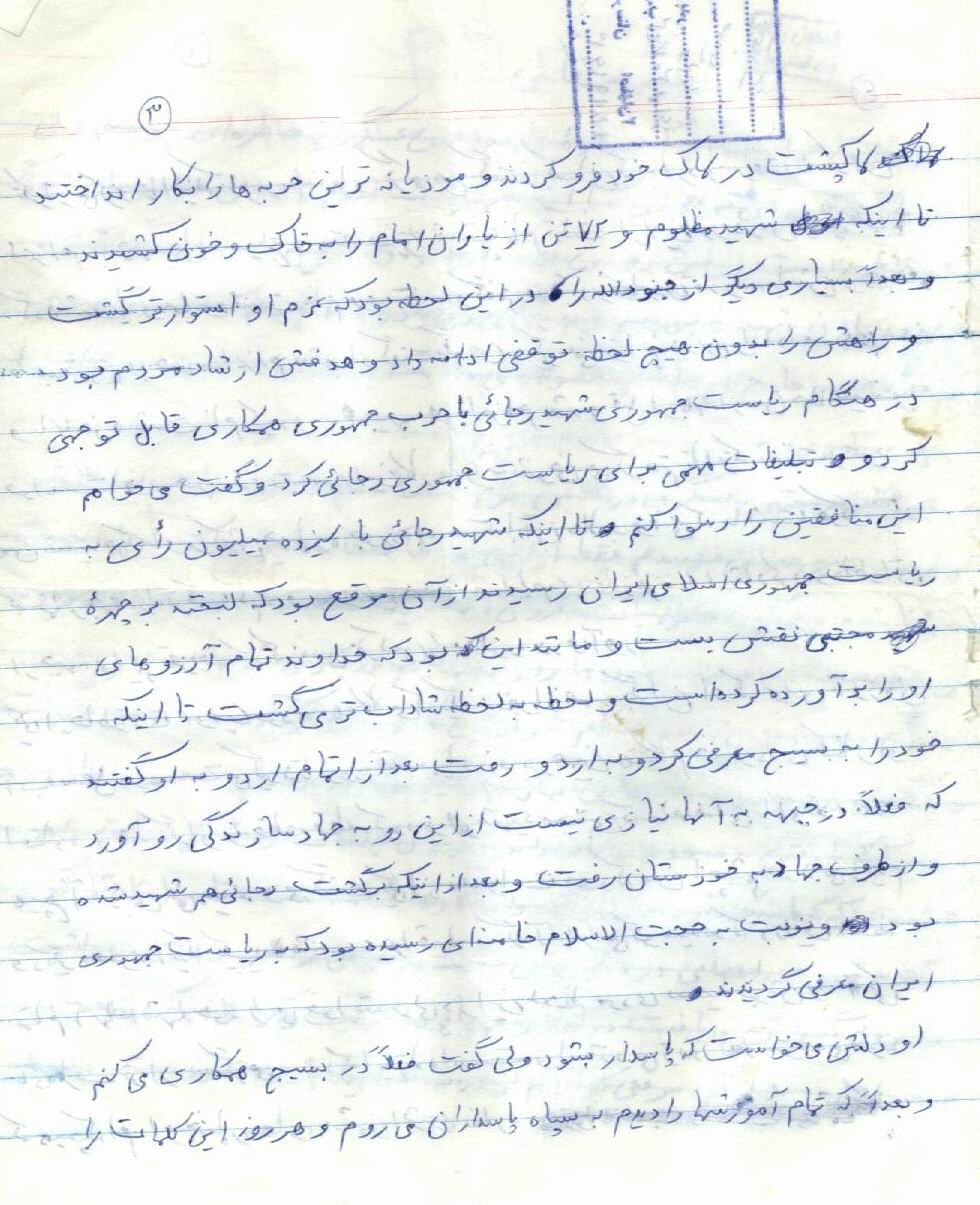 ۳
کاکپشت در لاک خود فرو کردند و موزیانه ترین حربه ها را بکار انداختند
تا اینکه شهید مظلوم و ۷۲ تن از یاران امام را به خاک و خون کشیدند
و بعداً بسیاری دیگر از جنودالله را در این لحظه بود که عزم او استوارتر گشت
و راهش را بدون هیچ لحظه توقفی ادامه داد و هدفش ارشاد مردم بود
در هنگام ریاست جمهوری شهید رجائی با حزب جمهوری همکاری قابل توجهی
کرد و تبلیغات مهمی برای ریاست جمهوری رجائی کرد و گفت می خواهم
این منافقین را رسوا کنم تا اینکه شهید رجائی با سیزده میلیون رأی به
ریاست جمهوری اسلامی ایران رسیدند از آن موقع بود که لبخند بر چهرهٔ
مجتبی نقش بست و مانند این بود که خداوند تمام آرزوهای
او را برآورده کرده است و لحظه به لحظه شاداب تر می گشت تا اینکه
خود را به بسیج معرفی کرد و به اردو رفت بعد از اتمام اردو به او گفتند
که فعلاً در جبهه به آنها نیازی نیست از این رو به جهاد سازندگی رو آورد
و از طرف جهاد به خوزستان رفت و بعد از اینکه برگشت رجائی هم شهید شده
بود و نوبت به حجت الاسلام خامنه‌ای رسیده بود که به ریاست جمهوری
ایران معرفی گردیدند
او دلش می خواست که پاسدار بشود ولی گفت فعلاً در بسیج همکاری می کنم
و بعداً که تمام آموزشها را دیدم به سپاه پاسداران می روم و هر روز این کلمات را